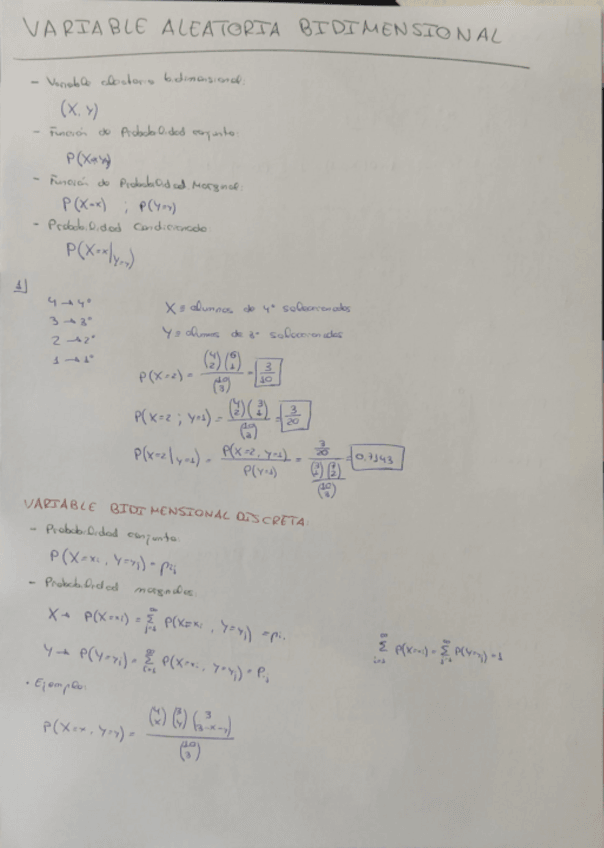 VARIABLE ALEATORIA BIDIMENSIONAL
- Variable aleatoria bidimensional:
(X, Y)
- Función de Probabilidad conjunta:
P(X=x, Y=y)
- Función de Probabilidad Marginal:
P(X=x) ; P(Y=y)
- Probabilidad Condicionada
P(X=x|Y=y)
1]
4 → 4º
3 → 3º
2 → 2º
1 → 1º
X ≡ alumnos de 4º seleccionados
Y ≡ alumnos de 3º seleccionados
P(X=2) = (4 2)(6 1) / (10 3) = 3/10
P(X=2 ; Y=1) = (4 2)(3 1) / (10 3) = 3/20
P(X=2|Y=1) = P(X=2, Y=1) / P(Y=1) = (3/20) / ((3 1)(7 2) / (10 3)) = 0,7143
VARIABLE BIDIMENSIONAL DISCRETA:
- Probabilidad conjunta:
P(X=xi, Y=yj) = pij
- Probabilidad marginales:
X → P(X=xi) = ∞Σj=1 P(X=xi, Y=yj) = pi.
Y → P(Y=yj) = ∞Σi=1 P(X=xi, Y=yj) = P.j
∞Σi=1 P(X=xi) = ∞Σj=1 P(Y=yj) = 1
· Ejemplo:
P(X=x, Y=y) = (4 x)(3 y)(3 3-x-y) / (10 3)